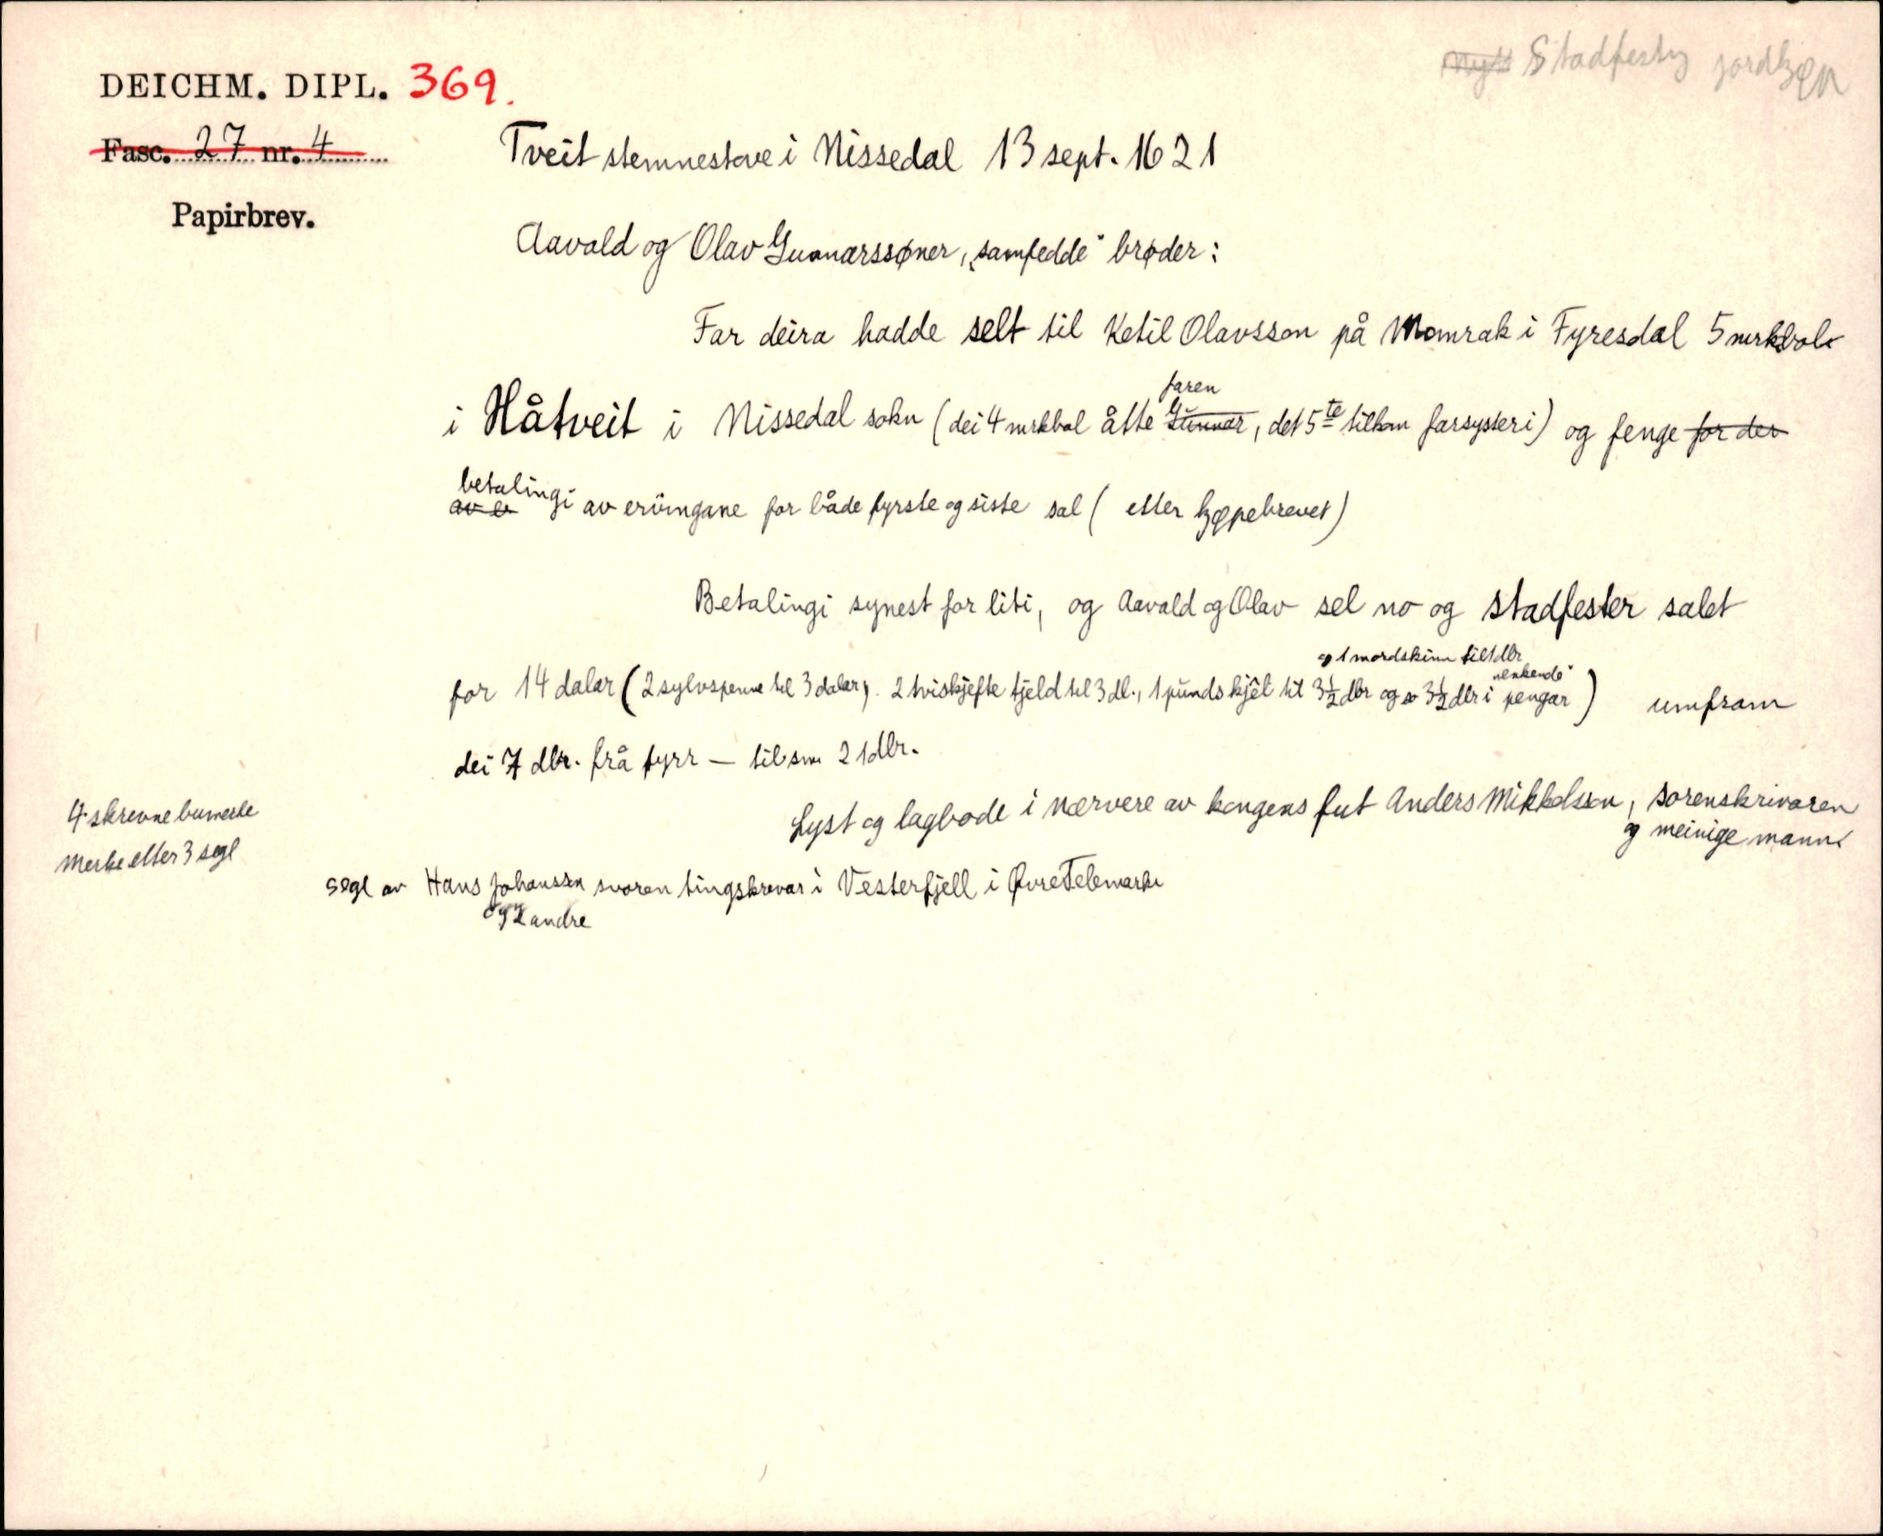 DEICHM. DIPL. 369.
Stadfesting jordkjøp
Fasc. 27 nr. 4
Tveit stemnestove i Nissedal 13 sept. 1621
Papirbrev.
Aavald og Olav Gunnarssøner, „samfedde" brøder:
Far deira hadde selt til Ketil Olavsson på Momrak i Fyresdal 5 mrkbol
i Håtveit i Nissedal sokn (dei 4 mrkbol åtte Gunnar faren, det 5te tilkom farsysteri) og fenge for der
av er betalingi av ervingane for både fyrste og siste sal (etter kjøpebrevet)
Betalingi synest for liti, og Aavald og Olav sel no og stadfester salet
og 1 mordskinn til 1 dlr
for 14 dalar (2 sylvspenne til 3 dalar, 2 tviskjefte tjeld til 3 dl., 1 punds kjêl til 3½ dlr og so 3½ dlr i pengar) umfram
dei 7 dlr. frå fyrr — tilsm 21 dlr.
Lyst og lagbode i nærvere av kongens fut Anders Mikkelsson, sorenskrivaren
og meinige mann
4 skrevne bumerke
Merke etter 3 segl
Segl av Hans Johansson svoren tingskrivar i Vesterfjell i Øvre Telemark
og 2 andre